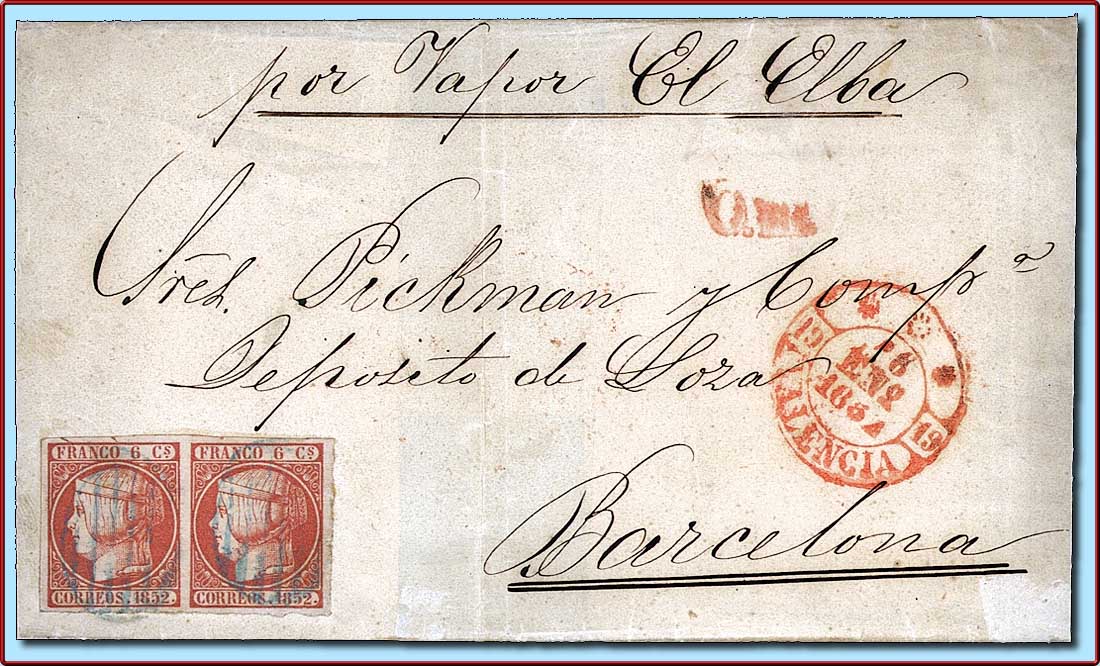 por Vapor El Elba
O.ms
Sres. Pickman y Compa
Deposito de Loza
Barcelona
19 19
ENE
VALENCIA
FRANCO 6 Cs FRANCO 6 Cs
CORREOS. 1852. CORREOS. 1852.